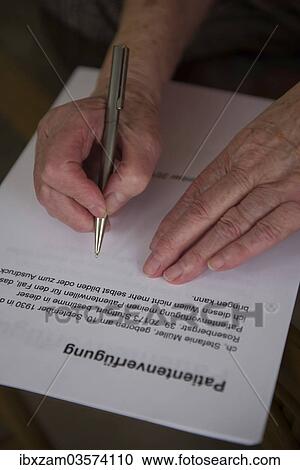 Patientenverfügung
ch, Stefanie Müller, geboren am 10. September 1930 in
Rosenbergstr. 39, 70173 Stuttgart, bestimme in dieser
Patientenverfügung meinen Patientenwillen für den Fall, das
ich diesen Willen nicht mehr selbst bilden oder zum Ausdruck
bringen kann.
fotosearch
ibxzam03574110 www.fotosearch.com